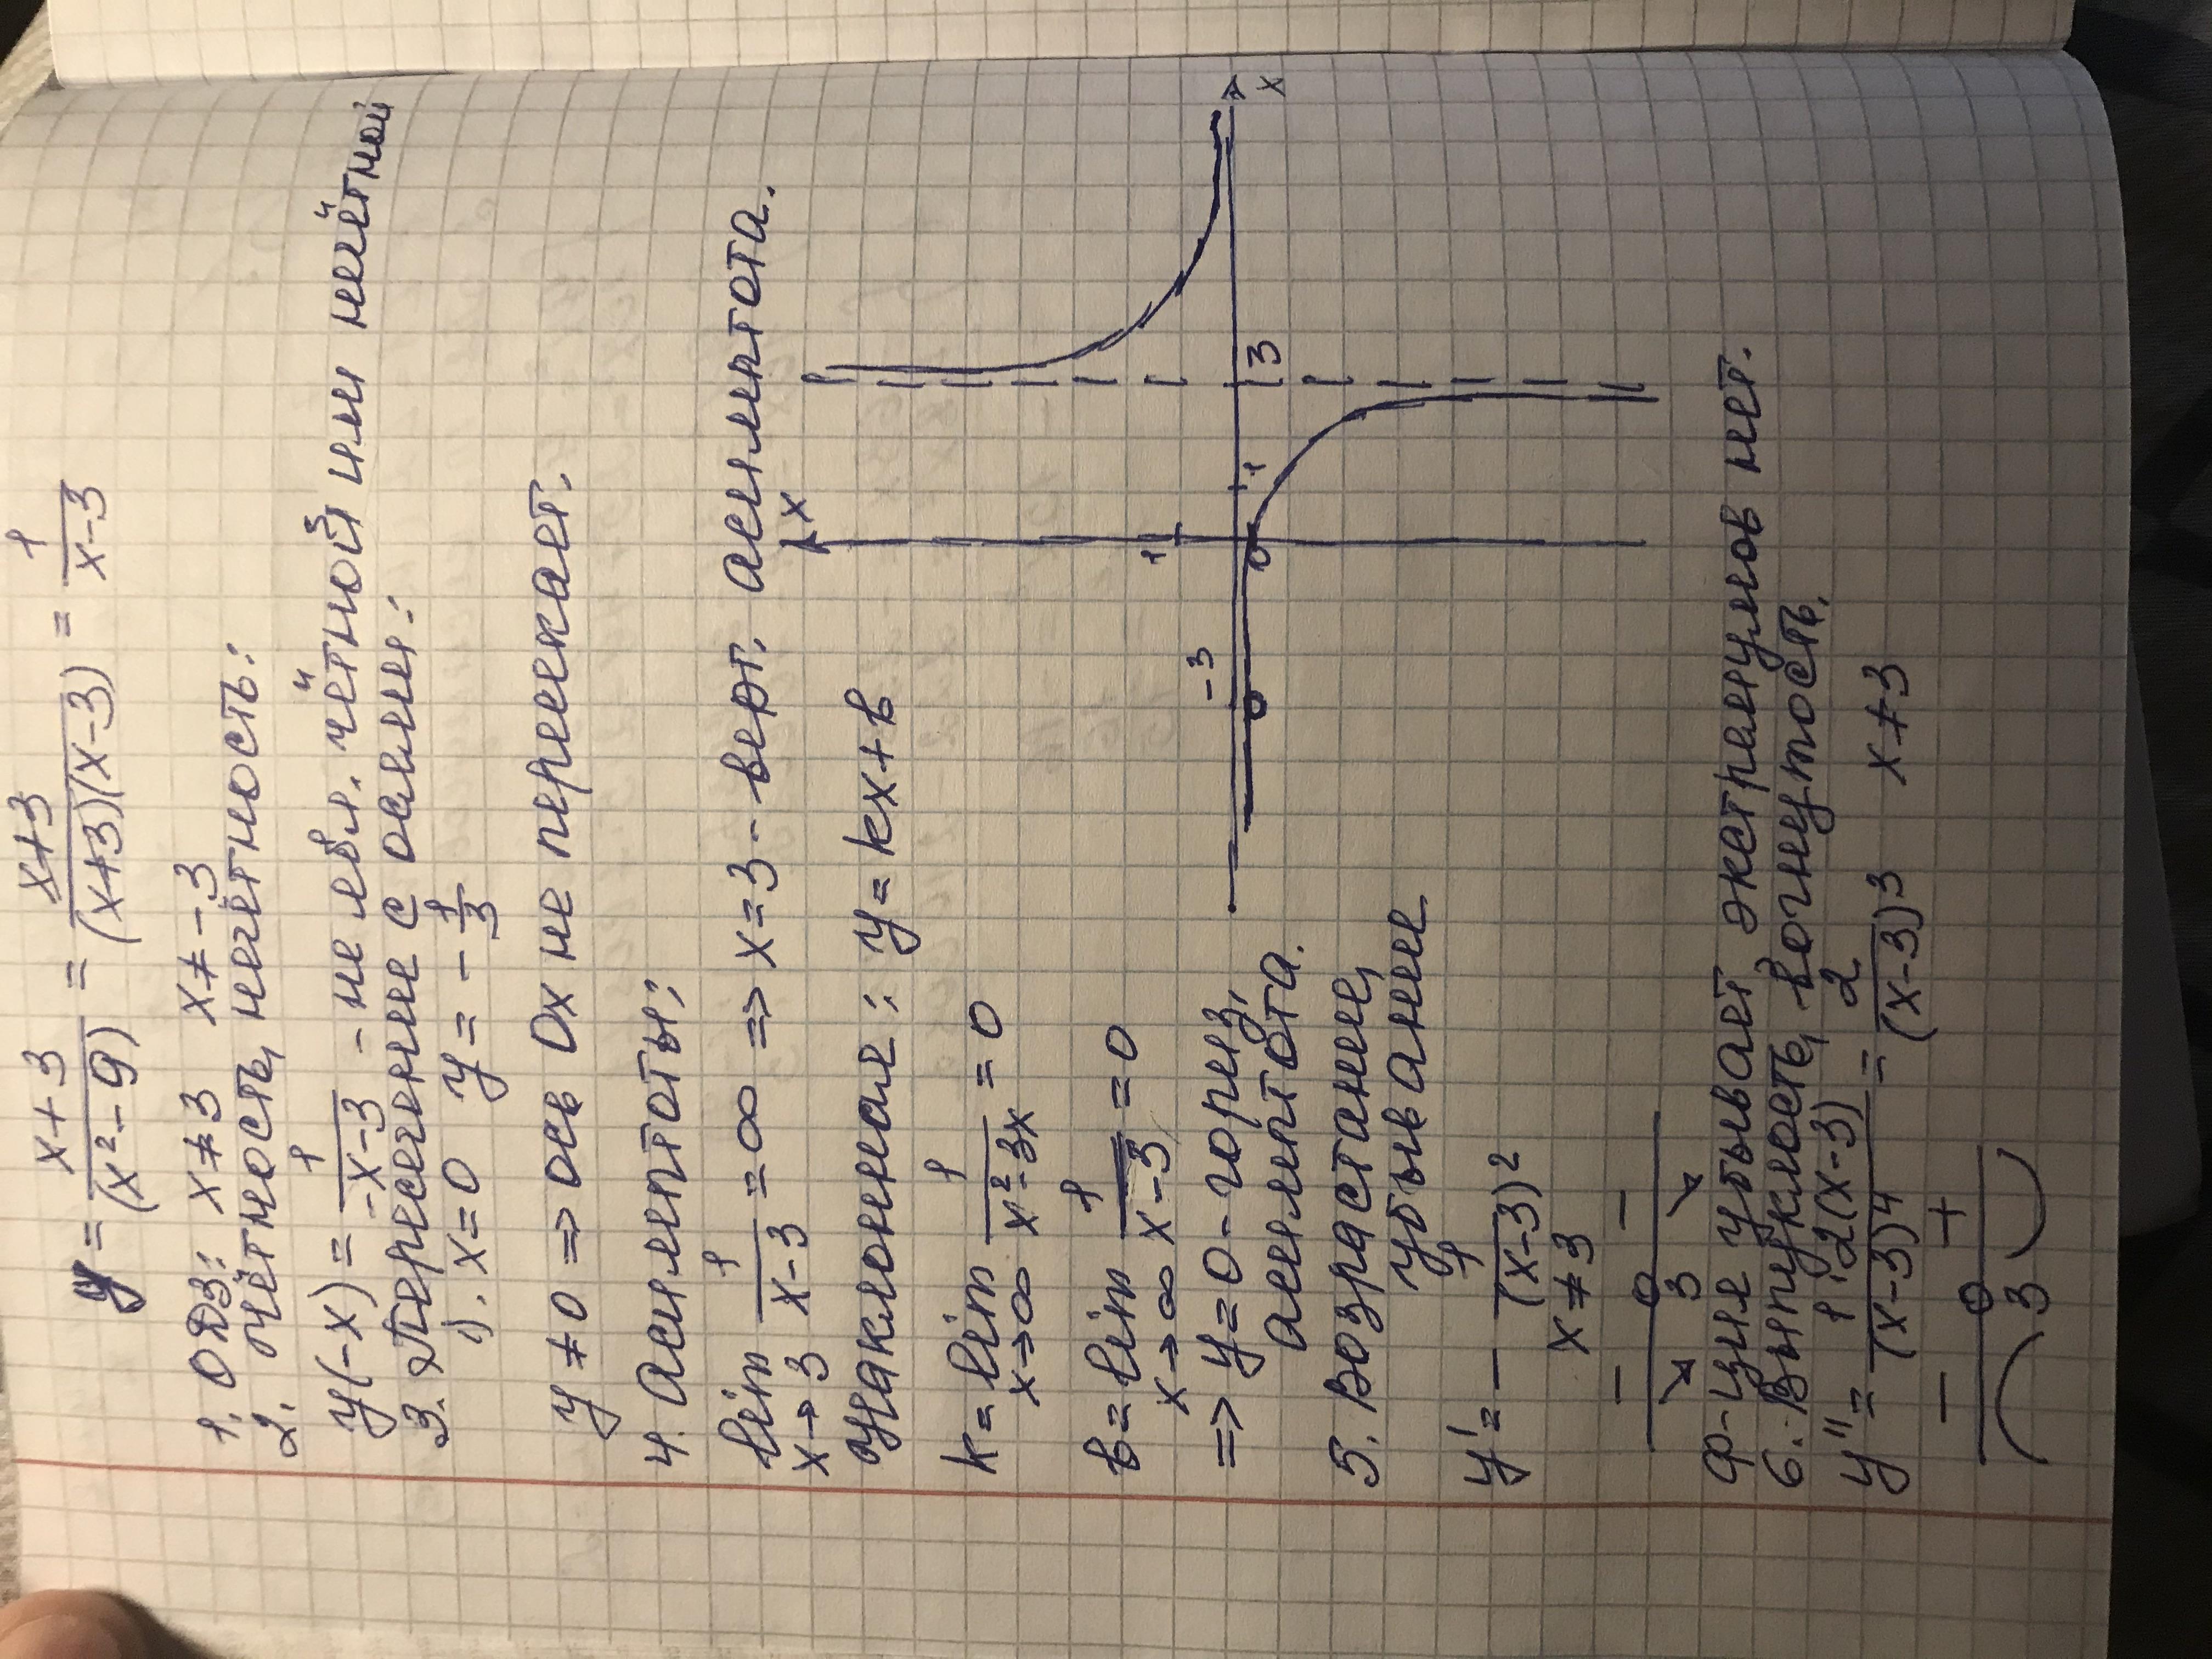 y = x+3/(x²-9) = x+3/(x+3)(x-3) = 1/x-3
1. ОДЗ: x≠3 x≠-3
2. Чётность, нечётность:
y(-x) = 1/-x-3 - не явл. чётной или нечётной
3. Пересечение с осями:
1). x=0 y = -1/3
y≠0 => ось Ox не пересекает.
4. Асимптоты:
lim x→3 1/x-3 = ∞ => x=3 - верт. асимптота.
Наклонная: y=kx+b
k = lim x→∞ 1/x²-3x = 0
b = lim x→∞ 1/x-3 = 0
=> y=0 - гориз. асимптота.
5. Возрастание, убывание
y' = - 1/(x-3)²
x≠3
- -
3
Ф-ция убывает экстремумов нет.
6. Выпуклость, вогнутость.
y'' = 1·2(x-3)/(x-3)⁴ = 2/(x-3)³ x≠3
- +
3
x
1
-3
0
1
3
x